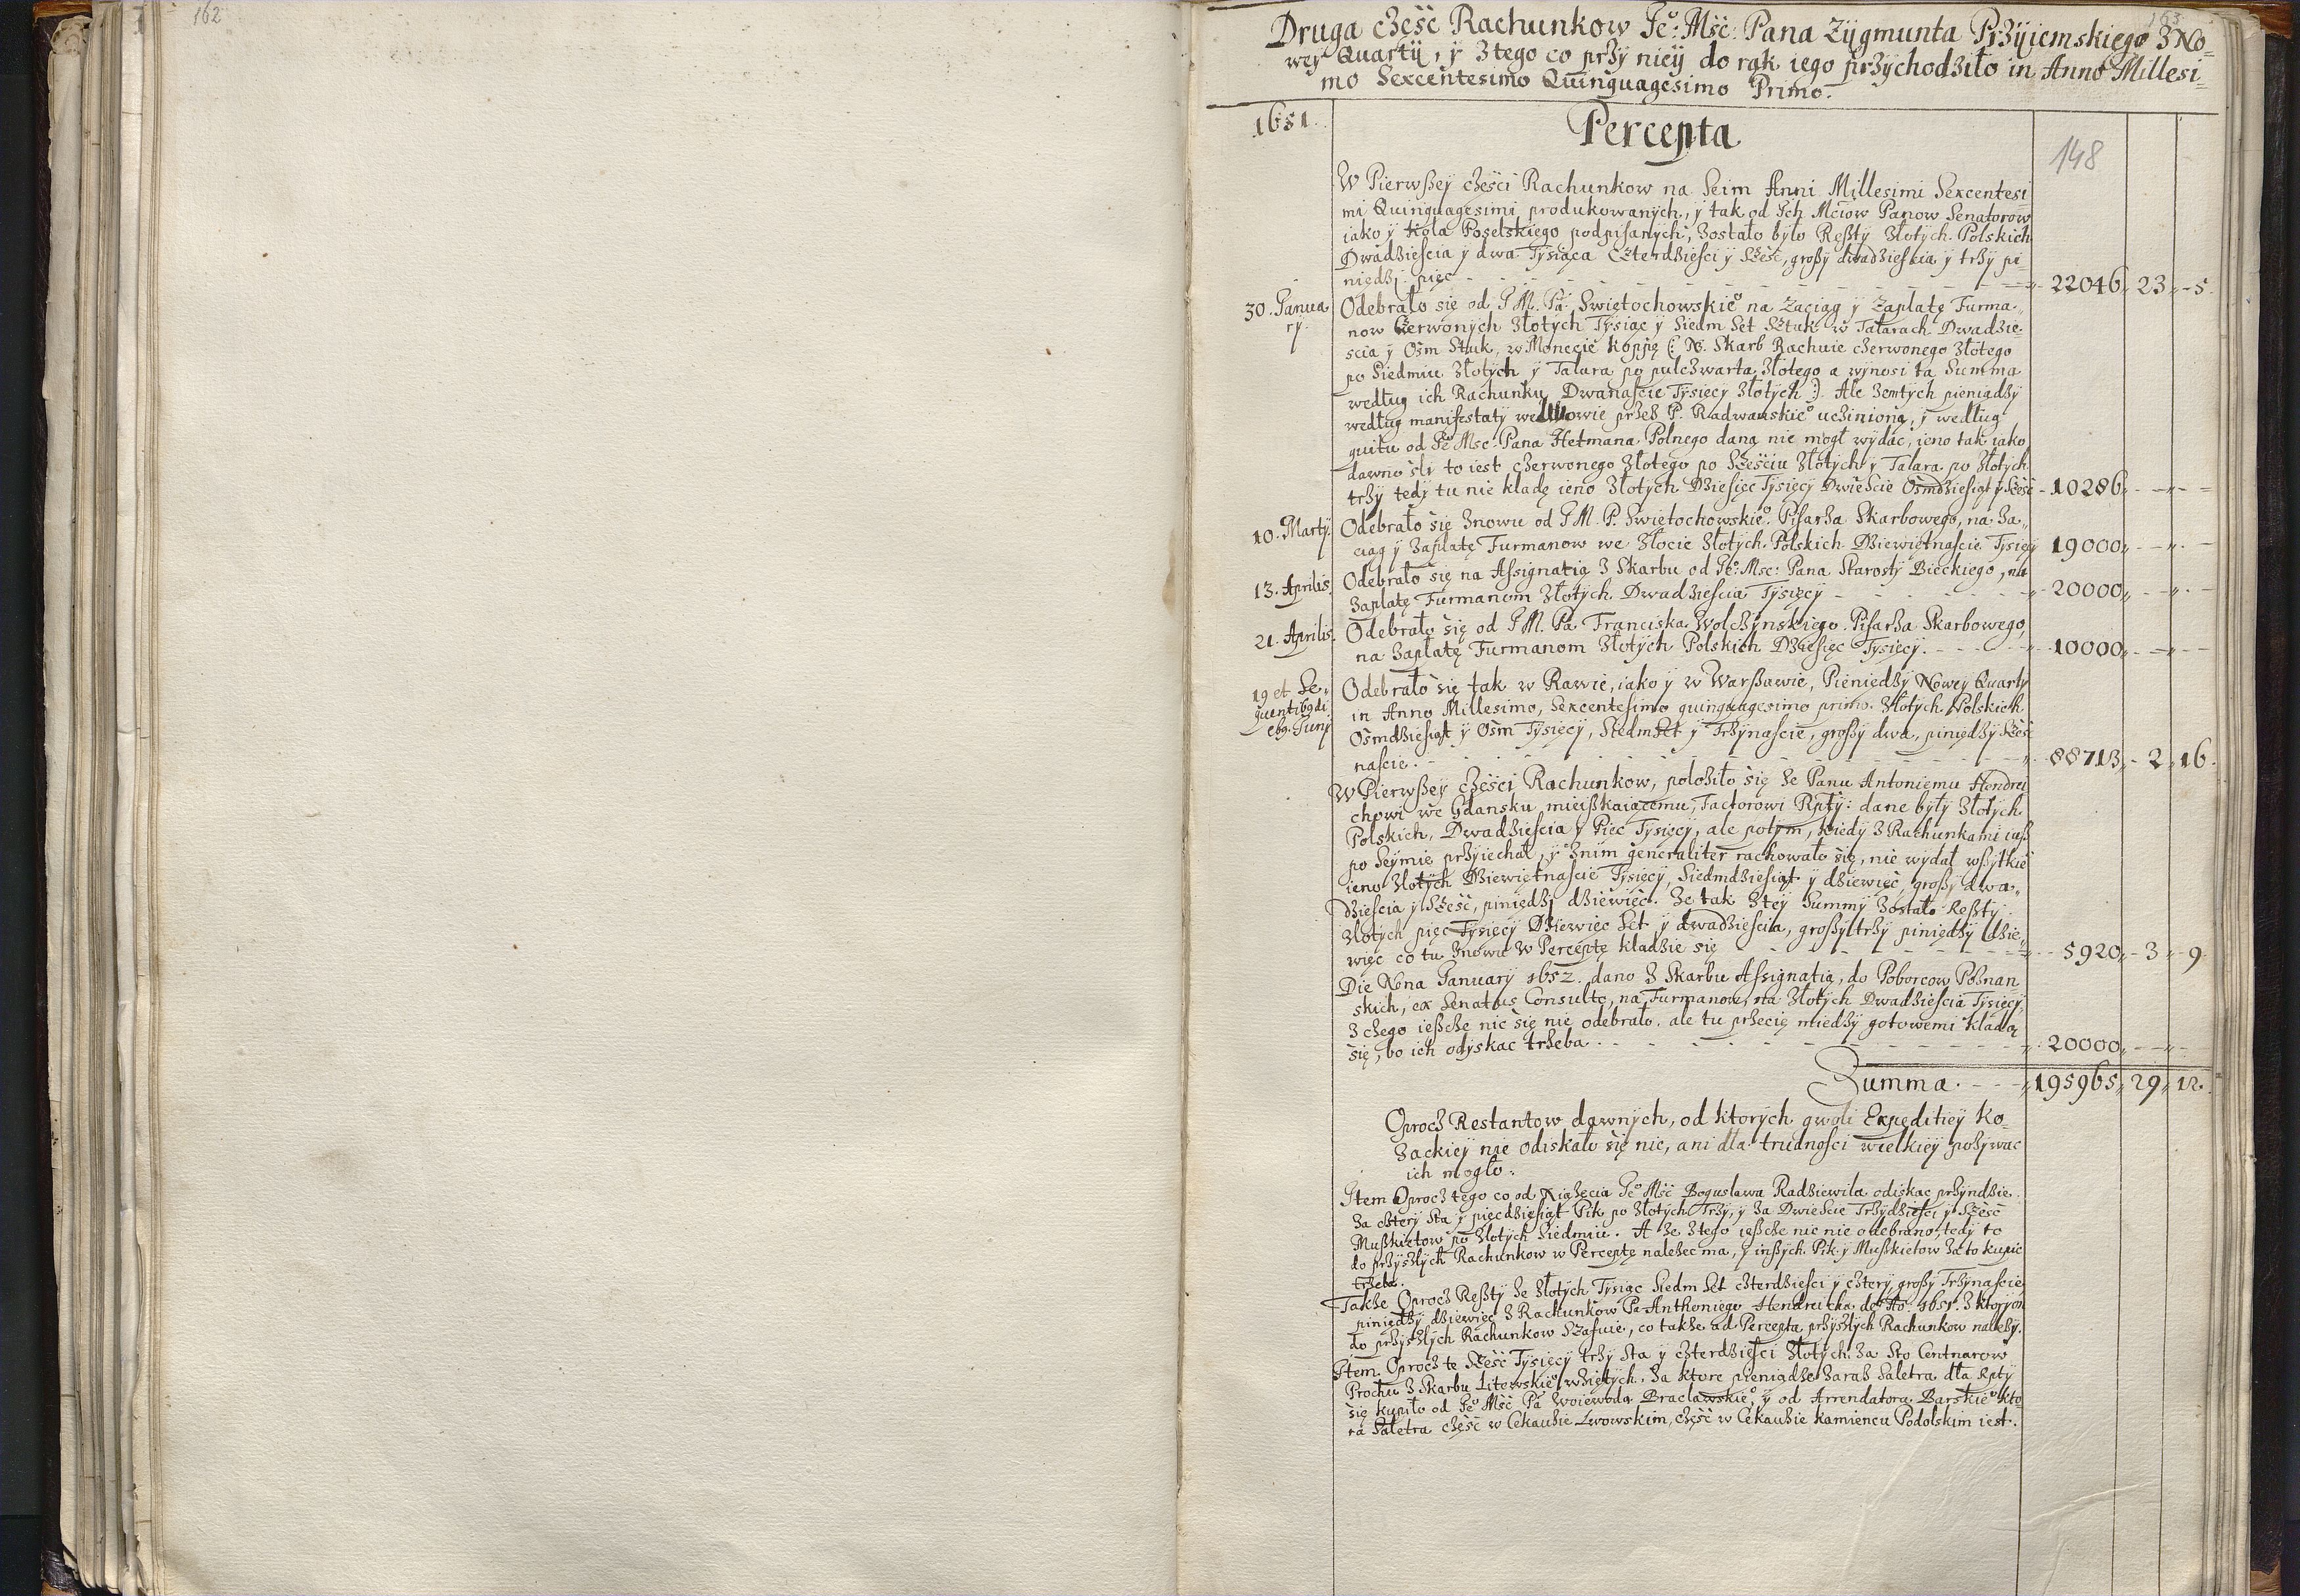 162
163
Druga część Rachunkow Jeo: Mśc: Pana Zygmunta Przyiemskiego z No-
wey Quarty, y z tego co przy niey do rąk iego przychodziło in Anno Millesi-
mo Sexcentesimo Quinquagesimo Primo.
1651.
Percepta
148
W Pierwszey części Rachunkow na Seim Anni Millesimi Sexcentesi-
mi Quinquagesimi produkowanych, y tak od Ich Mciow Panow Senatorow
iako y Koła Poselskiego podpisanych, zostało było Reszty Złotych Polskich
Dwadziescia y dwa Tysiąca Czterdziesci y Sześć, groszy dwadziescia y trzy pi-
niędzy pięc 22046 23 5
30. Janua-
ry.
Odebrało się od J M. Pa Swiętochowskieo na zaciąg y zapłatę Furma-
now Czerwonych Złotych Tysiąc y Siedm Set Sztuk w Talarach Dwadzie-
scia y Ośm Sztuk, w Monecie Koppę (: NB. Skarb Rachuie czerwonego złotego
po Siedmiu Złotych y Talara po pułczwarta złotego a wynosi ta Summa
według ich Rachunku Dwanascie Tysięcy Złotych :). Ale zemtych pieniądzy
według manifestaty we Lwowie przez P. Radwanskieo uczinioną, y według
quitu od Jeo Msc: Pana Hetmana Polnego daną nie mogł wydać, ieno tak iako
dawno śli to iest czerwonego złotego po Sześciu Złotych y Talara po Złotych
trzy tedy tu nie kladę ieno Złotych Dziesięc Tysięcy Dwieście Ośmdziesiąt y Sześc 10286
10. Marty.
Odebrało się znowu od J M. P. Swiętochowskieo. Pisarza Skarbowego, na za-
ciąg y zapłatę Furmanow we złocie Złotych Polskich Dziewiętnascie Tysięcy 19000
13. Aprilis.
Odebrało się na Assignatią z Skarbu od Jeo: Msc: Pana Starosty Bieckiego, na
zapłatę Furmanom Złotych Dwadziescia Tysięcy 20000
21. Aprilis.
Odebrało się od J M. Pa Franciska Wolczynskiego Pisarza Skarbowego,
na zapłatę Furmanom Złotych Polskich Dziesięc Tysięcy. 10000
19 et Se-
quentibq di
ebq. Juny
Odebrało się tak w Rawie, iako y w Warszawie, Pieniędzy Nowey Quarty
in Anno Millesimo, Sexcentesimo quinquagesimo primo. Złotych Polskich
Ośmdziesiąt y Ośm Tysięcy, Siedmset y Trzynascie, groszy dwa, piniędzy Szes-
nascie. 88713 2 16.
W Pierwszey części Rachunkow, położiło się że Panu Antoniemu Hendrei
chowi we Gdansku mieiszkaiącemu, Factorowi Rpty: dane były Złotych
Polskich, Dwadziescia y Pięc Tysięcy, ale potym, kiedy z Rachunkami iuż
po Seymie przyiechał, y znim generaliter rachowało się, nie wydał wszytkie
ieno Złotych Dziewiętnascie Tysięcy Siedmdziesiąt y dziewięć, groszy dwa-
dziescia y Sześć, piniędzy dziewięć. Ze tak ztey Summy zostało Reszty
Złotych pięc Tysięcy Dziewięc Set y dwadziescia, groszy trzy piniędzy dzie-
więc co tu znowu W Perceptę kładzie się 5920 3 9.
Die Nona January 1652. dano z Skarbu Assignatią, do Poborcow Poznan-
skich, ex Senatus Consulto, na Furmanow, na Złotych Dwadziescia Tysięcy,
z czego ieszcze nic się nie odebrało, ale tu przecię miedzy gotowemi kładą
się, bo ich odyskac trzeba 20000
Summa. 195965 29 12.
Oprocz Restantow dawnych, od ktorych gwoli Expeditiey Ko-
zackiey nie odiskało się nic, ani dla trudnosci wielkiey pozywac
ich mogło.
Item Oprocz tego co od Xiążecia Jeo Mśc Bogusława Radziewiła odiskac przyndzie
za cztery sta y pięcdziesiąt Pik po Złotych Trzy, y za Dwieście Trzydziesci y Sześć
Muszkietow po Złotych Siedmiu. A że ztego ieszcze nic nie odebrano, tedy to
do przyszłych Rachunkow w Perceptę należec ma, y inszych Pik y Muszkietow za to kupic
trzeba.
Także Oprocz Reszty ze Złotych Tysiąc Siedm Set czterdziesci y cztery groszy Trzynascie
piniędzy dziewięc z Rachunkow Pa Anthoniego Hendricha de Ao. 1651. z ktorych on
do przyszłych Rachunkow Szafuie, co także ad Percepta przyszłych Rachunkow należy.
Item. Oprocz te Sześc Tysięcy trzy sta y czterdziesci Złotych za Sto Centnarow
Prochu z Skarbu Litewskieo wziętych, za ktore pieniądze zaraz Saletra dla Rpty
się kupiło od Jeo Mśc Pa Woiewoda Bracławskieo, y od Arrendatora Barskieo kto-
ra Saletra część w Cekauzie Lwowskim, część w Cekauzie Kamiencu Podolskim iest.